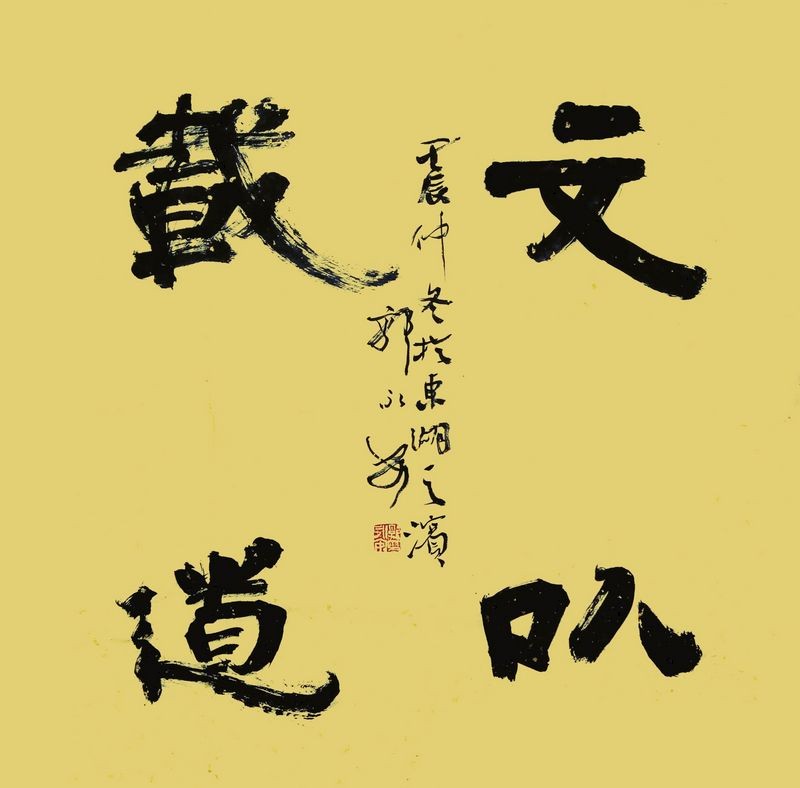 文㕥
載道
壬辰仲冬於東湖之濱
郭永